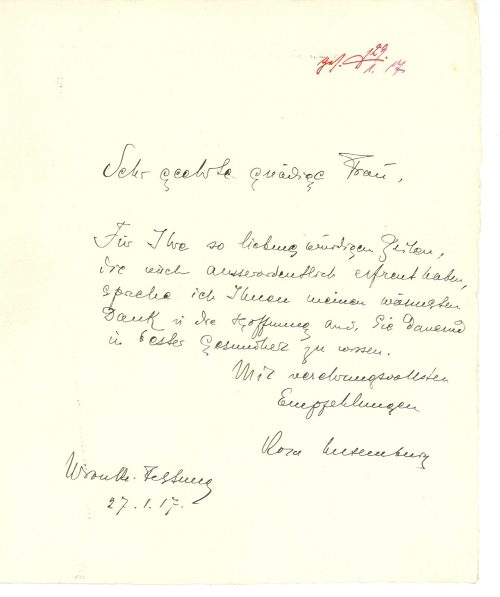 ges. 29./1. 17
Sehr geehrte gnädige Frau,
Für Ihre so liebenswürdigen Zeilen,
die mich ausserordentlich erfreut haben,
spreche ich Ihnen meinen wärmsten
Dank u die Hoffnung aus, Sie dauernd
in bester Gesundheit zu wissen.
Mit verehrungsvollsten
Empfehlungen
Rosa Luxemburg
Wronke. Festung
27.1.17.